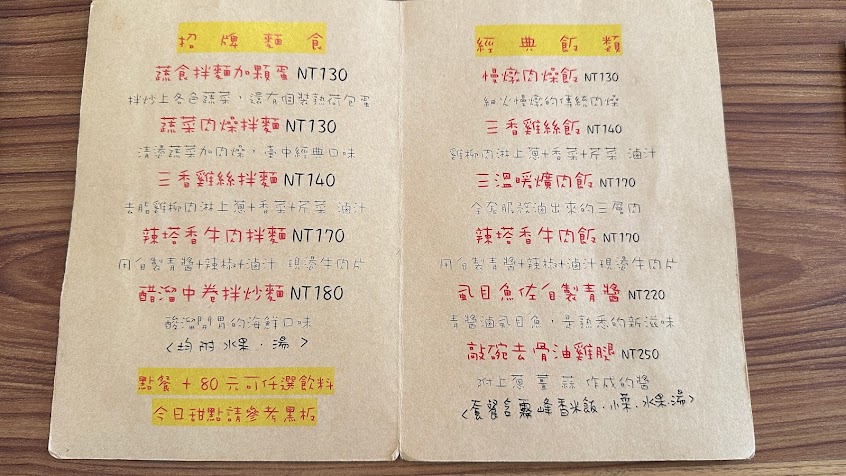 招牌麵食
蔬食拌麵加顆蛋 NT130
拌炒上各色蔬菜，還有個裝熟荷包蛋
蔬菜肉燥拌麵 NT130
清燙蔬菜加肉燥，臺中經典口味
三香雞絲拌麵 NT140
去脂雞柳肉淋上蔥+香菜+芹菜 滷汁
辣塔香牛肉拌麵 NT170
用自製青醬+辣椒+滷汁 現燙牛肉片
醋溜中卷拌炒麵 NT180
酸溜開胃的海鮮口味
<均附水果．湯>
點餐+80元可任選飲料
今日甜點請參考黑板
經典飯類
慢燉肉燥飯 NT130
細火慢燉的傳統肉燥
三香雞絲飯 NT140
雞柳肉淋上蔥+香菜+芹菜 滷汁
三溫暖爌肉飯 NT170
全套服務滷出來的三層肉
辣塔香牛肉飯 NT170
用自製青醬+辣椒+滷汁現燙牛肉片
虱目魚佐自製青醬 NT220
青醬滷虱目魚，是熟悉的新滋味
敲碗去骨油雞腿 NT250
附上蔥 薑 蒜 作成的醬
<套餐含霧峰香米飯．小菜．水果．湯>